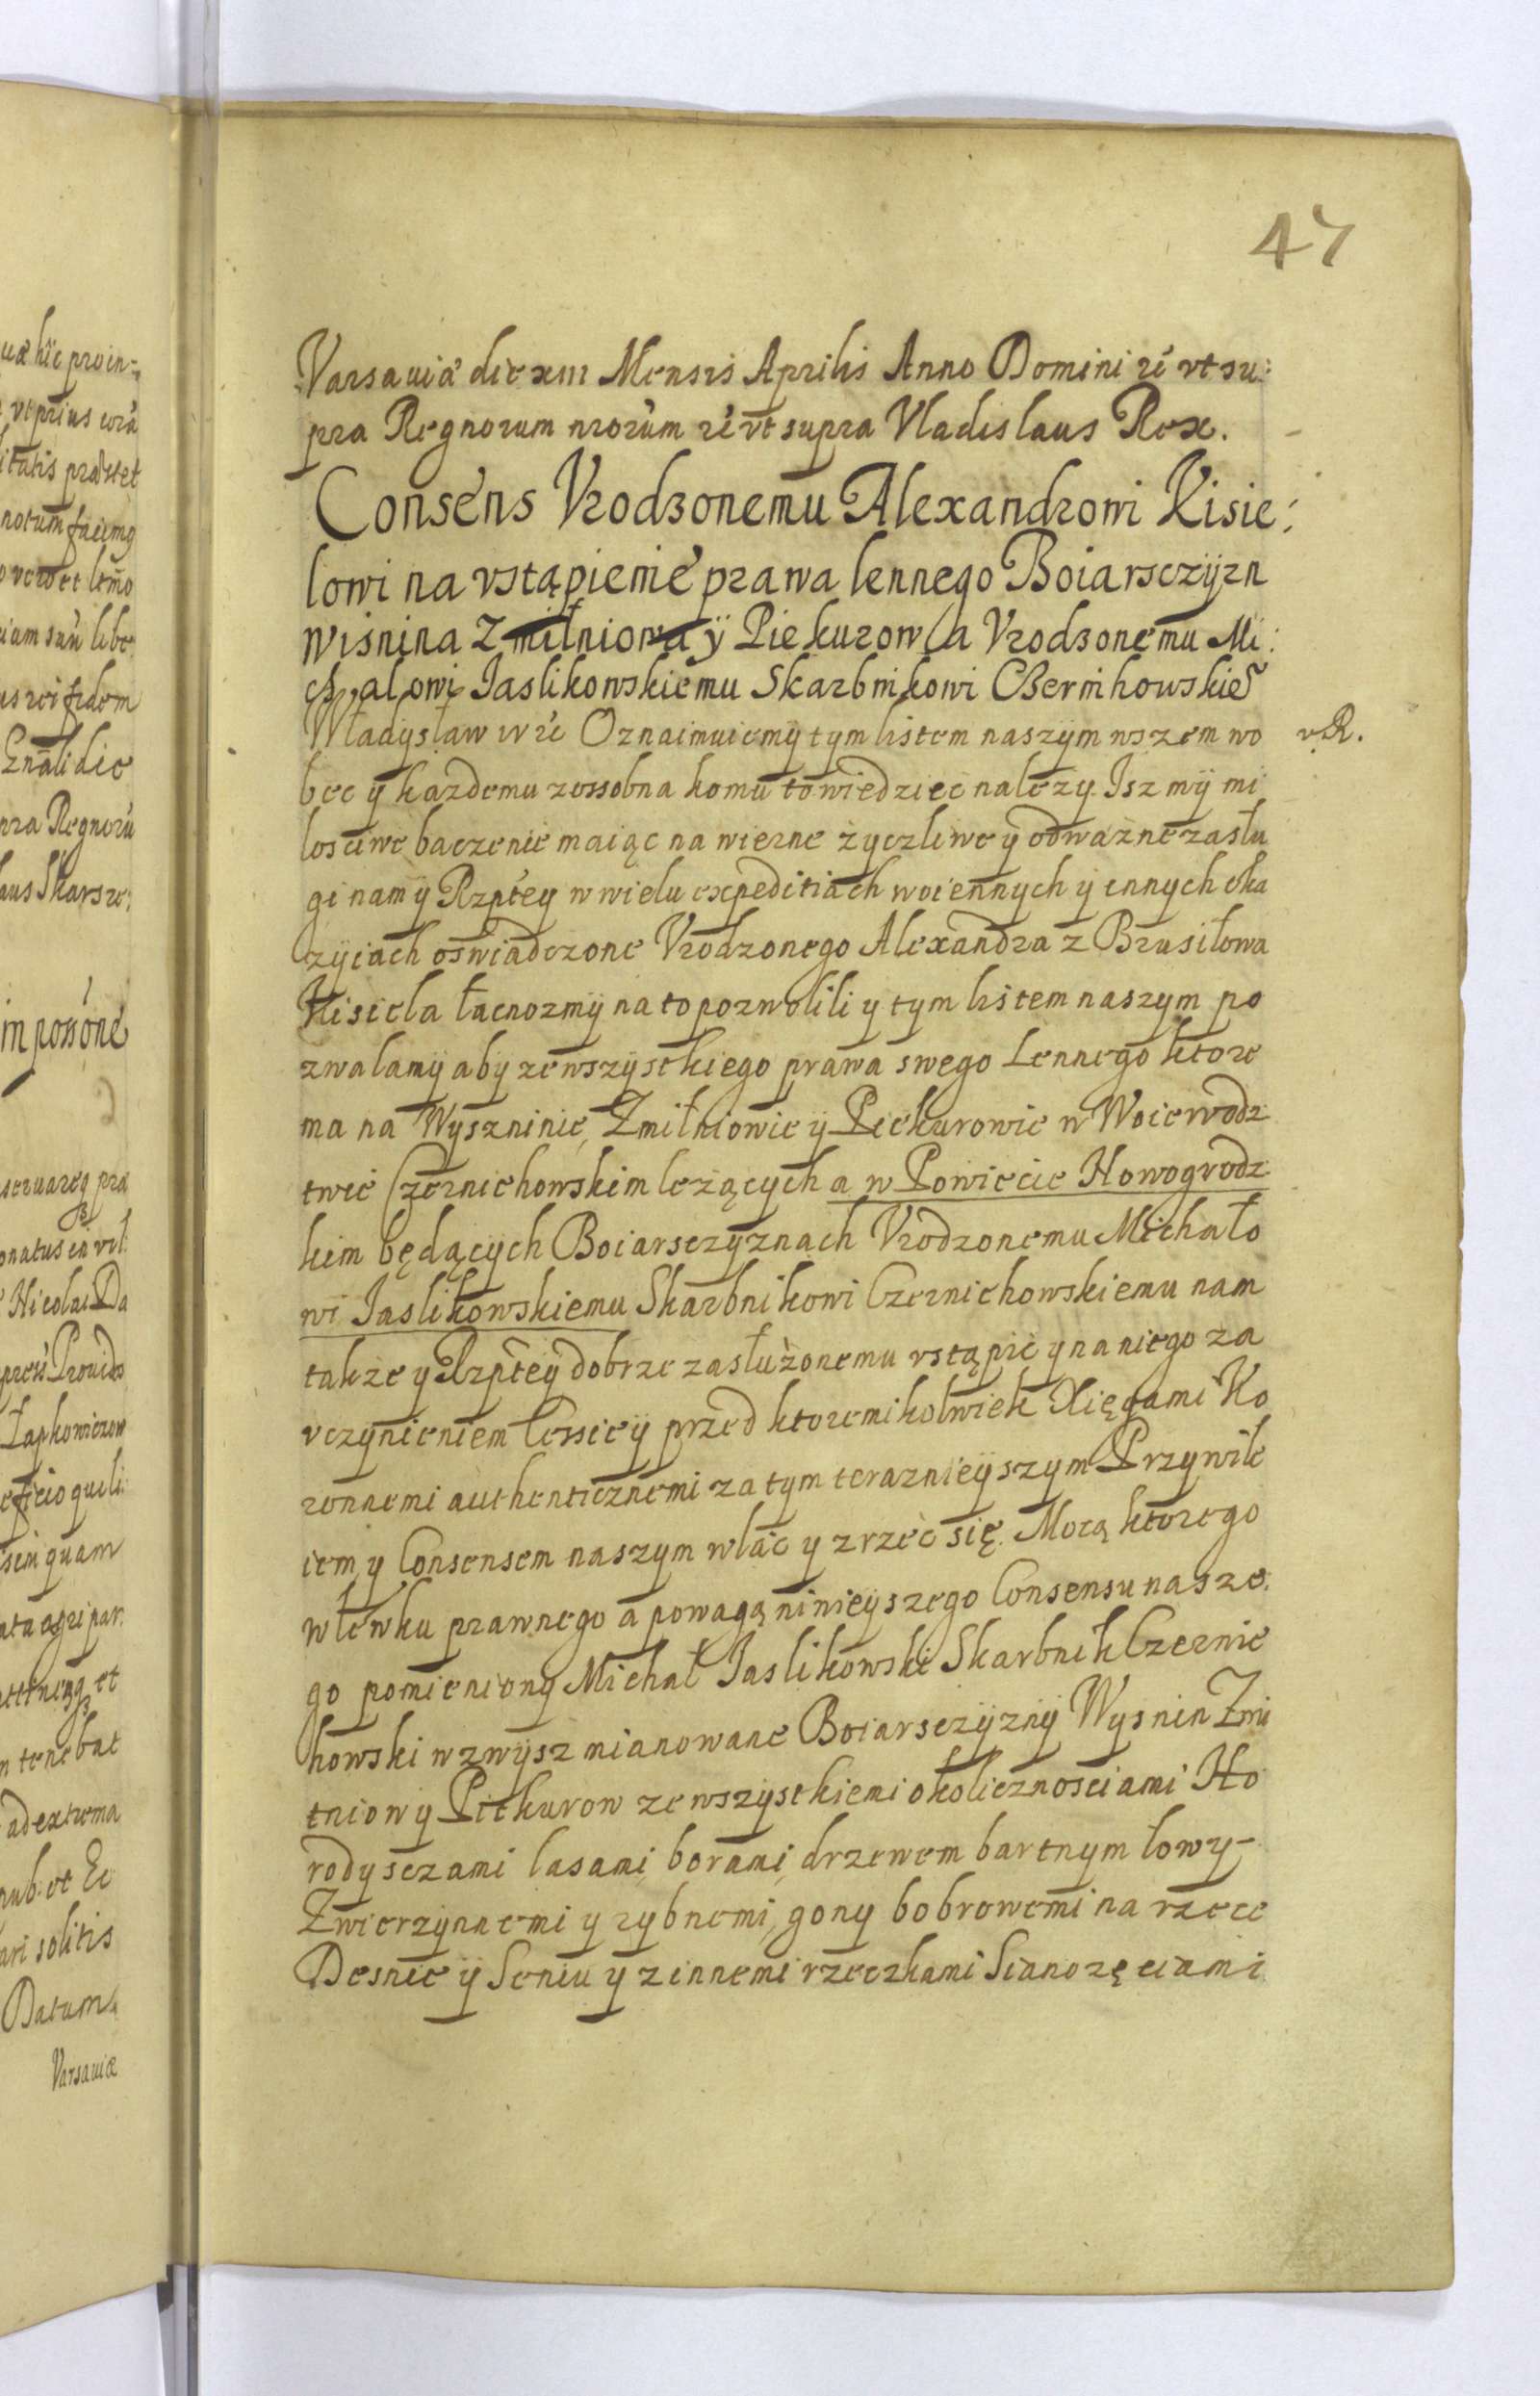 47
Varsauiæ die xiii Mensis Aprilis Anno Domini rẻ vt su:
pra Regnorum nrorũm rẻ vt supra Vladislaus Rex.
Consens Vrodzonemu Alexandrowi Kisie:
lowi na vstąpienie prawa lennego Boiarsczÿzn
Wisnina Zmiłniowa ÿ Piekurowa Vrodzonemu Mi:
chałowi Jaslikowskiemu Skarbnikowi Czernihowskie°
Władysław IV rẻ Oznaimuiemÿ tym listem naszÿm wszem wo
v. R.
bec ÿ każdemu zossobna komu to wiedziec nalezy. Isz mÿ mi
losciwe baczenie maiąc na wierne życzliwe ÿ odważne zasłu
gi nam ÿ Rzptey w wielu expeditiach woiennych ÿ innych oka
zÿiach oswiadczone Vrodzonego Alexandra z Brusiłowa
Kisiela łacnozmÿ na to pozwolili y tym listem naszym po
zwalamÿ abÿ zewszÿstkiego prawa swego Lennego ktore
ma na Wyszninie, Zmiłniowie ÿ Piekurowie w Woiewodz
twie Czernichowskim leżących a w Powiecie Nowogrodz
kim będących Boiarsczyznach Vrodzonemu Michało
wi Jaslikowskiemu Skarbnikowi Czernichowskiemu nam
także y Rzptey dobrze zasłużonemu vstąpić y na niego za
vczynieniem Cessieÿ przed ktoremikolwiek Xięgami Ko
ronnemi authenticznemi za tym teraznieÿszym Przywile
iem y Consensem naszym wlać y zrzec się. Mocą ktorego
wlewku prawnego a powagą ninieÿszego Consensu nasze:
go pomieniony Michał Jaslikowski Skarbnik Czernie
howski wzwysz mianowane Boiarsczÿznÿ Wysnin Zmi
tniow y Piekurow ze wszystkiemi okolicznosciami Ho
rodysczami lasami, borami, drzewem bartnym lowy-
Zwierzÿnnemi y rybnemi, gony bobrowemi na rzece
Desnie ÿ Seniu y z innemi rzeczkami Sianozęciami